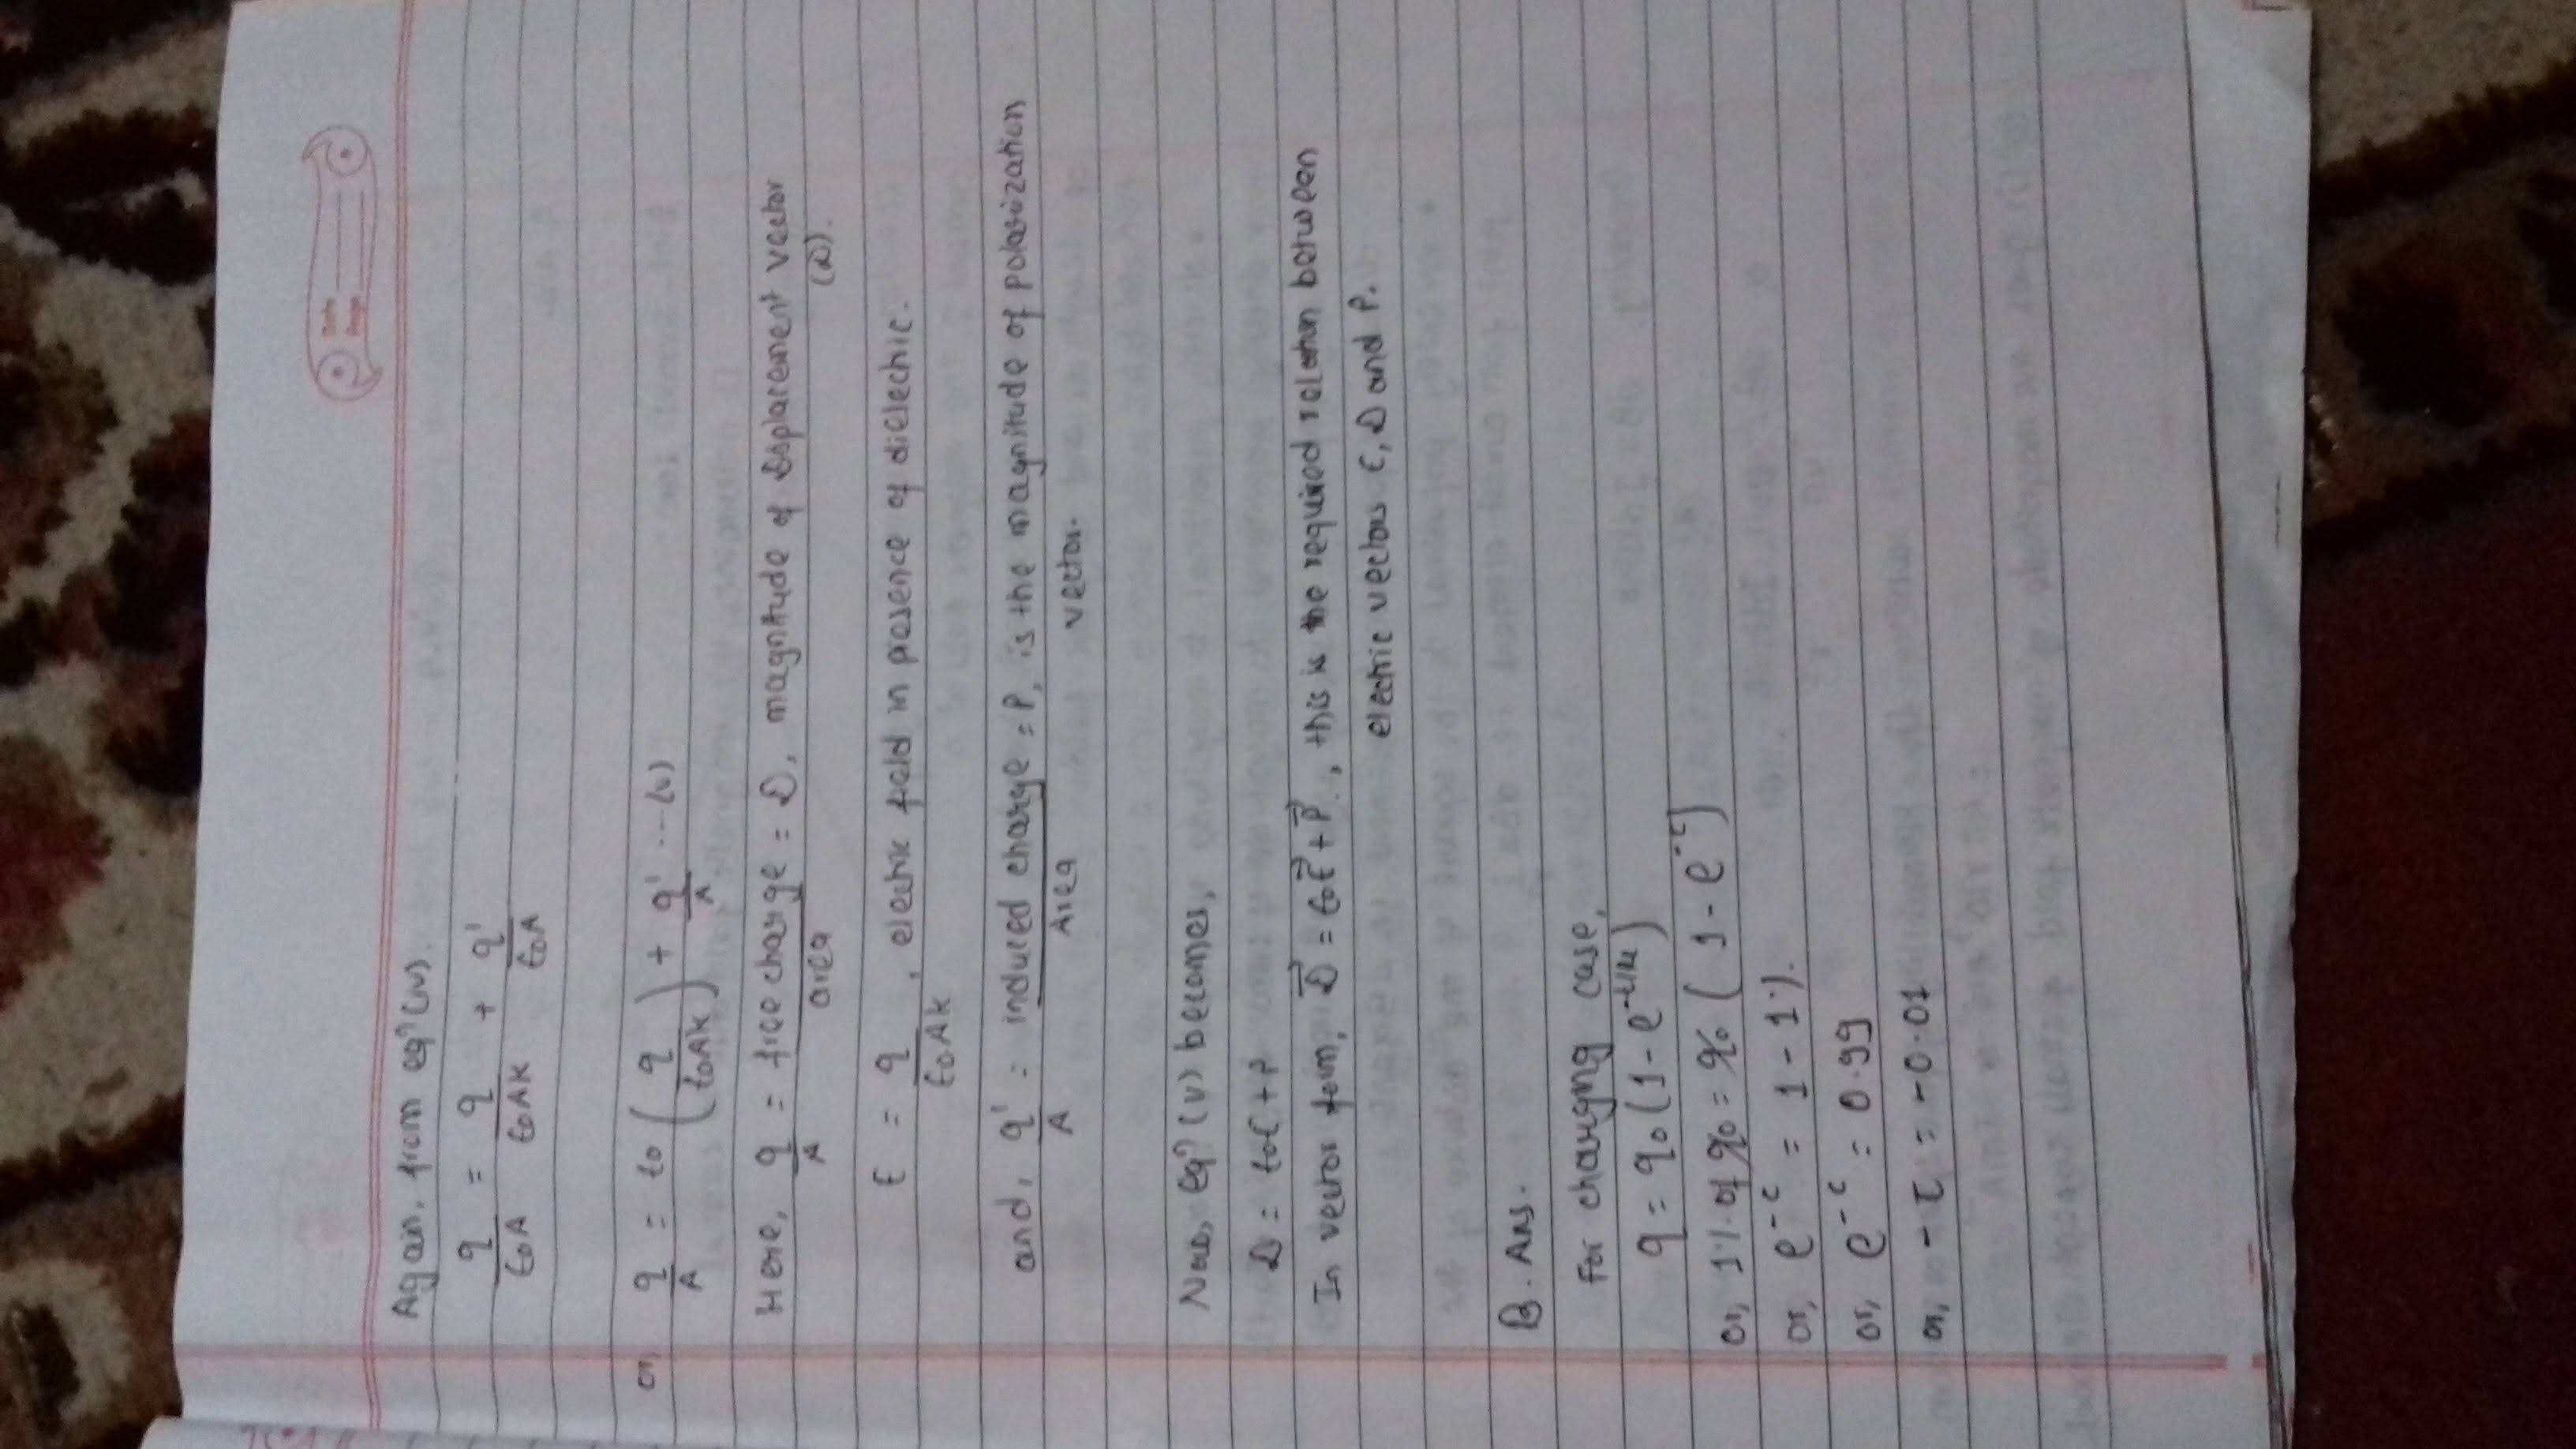 Date
Page
Again, from eqn (iv).
q/ε0A = q/ε0AK + q'/ε0A
or, q/A = ε0 (q/ε0AK) + q'/A ---(v)
Here, q/A = free charge/area = D, magnitude of Displacement vector
(D).
E = q/ε0AK, electric field in presence of dielectric.
and, q'/A = induced charge/Area = P, is the magnitude of polarization
vector.
Now, eqn (v) becomes,
D = ε0E + P
In vector form, D⃗ = ε0E⃗ + P⃗, this is the required relation between
electric vectors E, D and P.
B. Ans.
For charging case,
q = q0 (1 - e^-t/Rc)
or, 1% of q0 = q0 ( 1 - e^-τ)
or, e^-τ = 1 - 1%.
or, e^-τ = 0.99
or, - τ = -0.01